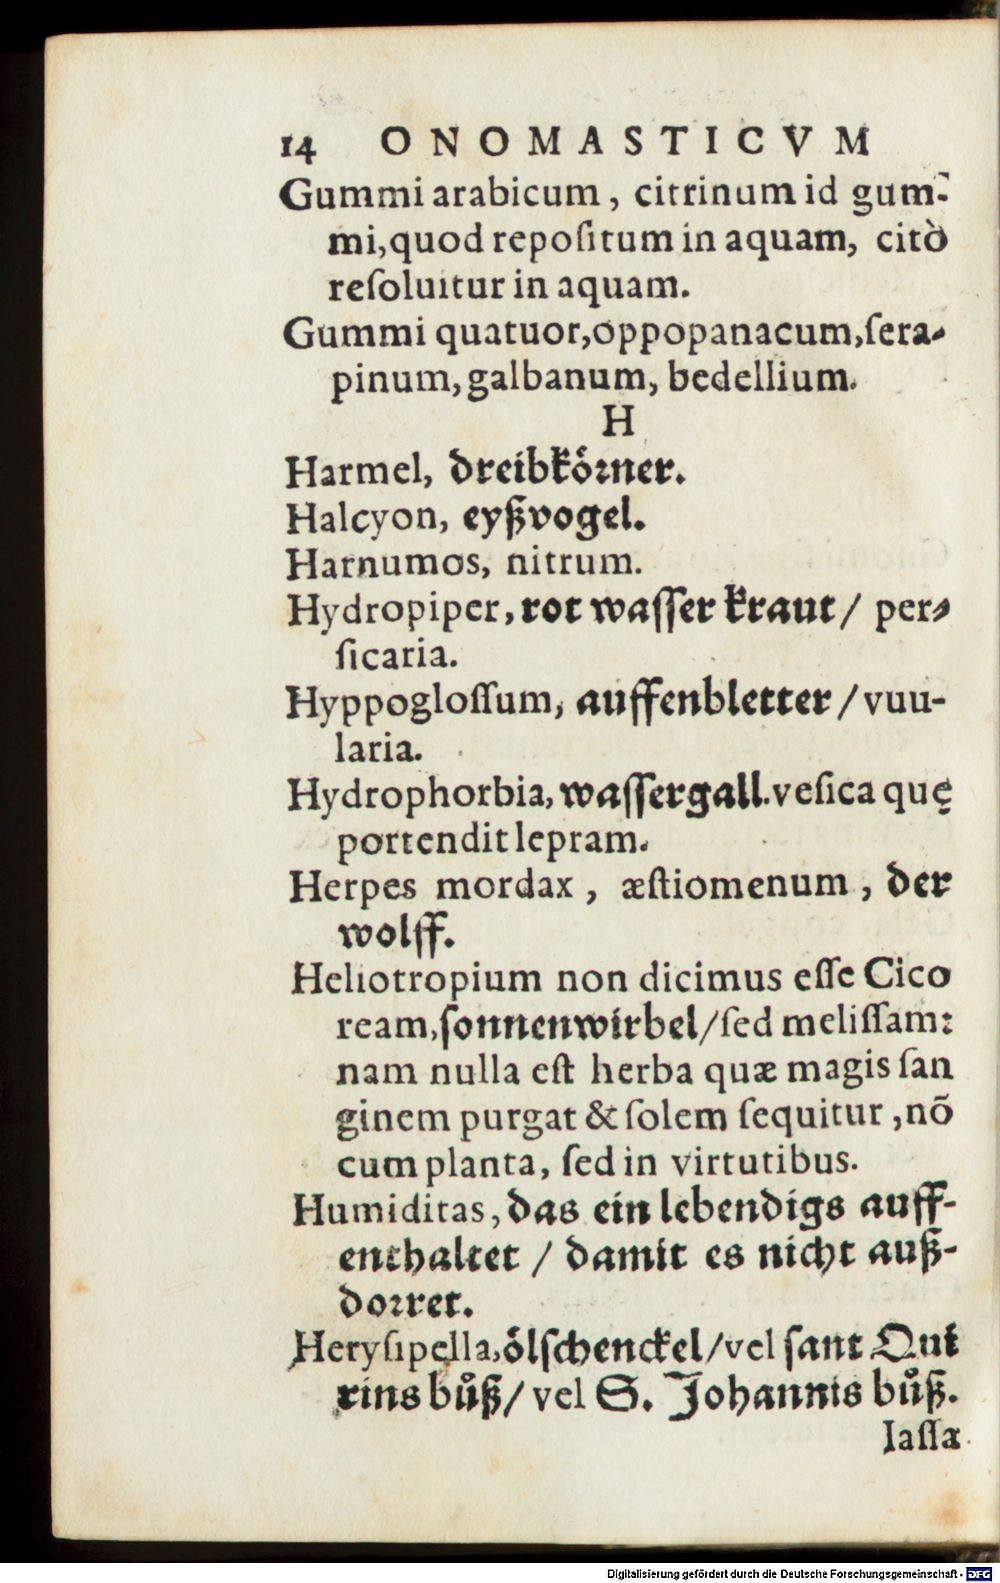 14 ONOMASTICVM
Gummi arabicum, citrinum id gum-
mi, quod repoſitum in aquam, citò
reſoluitur in aquam.
Gummi quatuor, oppopanacum, ſera-
pinum, galbanum, bedellium.
H
Harmel, dreibkoͤrner.
Halcyon, eyßvogel.
Harnumos, nitrum.
Hydropiper, rot waſſer kraut / per-
ſicaria.
Hyppogloſſum, auffenbletter / vuu-
laria.
Hydrophorbia, waſſergall. veſica quę
portendit lepram.
Herpes mordax, æſtiomenum, der
wolff.
Heliotropium non dicimus eſſe Cico
ream, ſonnenwirbel / ſed meliſſam:
nam nulla eſt herba quæ magis ſan
ginem purgat & ſolem ſequitur, nõ
cum planta, ſed in virtutibus.
Humiditas, das ein lebendigs auff-
enthaltet / damit es nicht auß-
dorret.
Heryſipella, oͤlſchenckel / vel ſant Qui
rins buͦß / vel S. Johannis buͦß.
Iaſſa
Digitalisierung gefördert durch die Deutsche Forschungsgemeinschaft - DFG